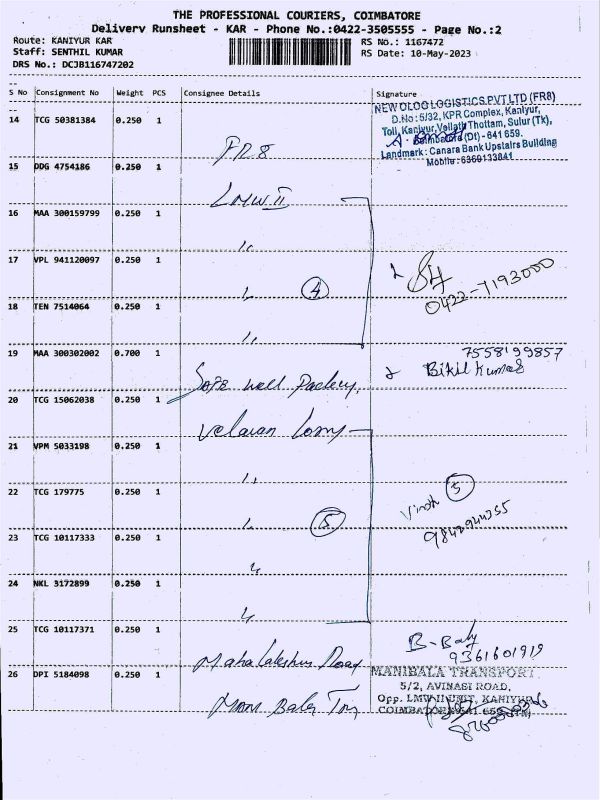 THE PROFESSIONAL COURIERS, COIMBATORE
Delivery Runsheet - KAR - Phone No.:0422-3505555 - Page No.:2
Route: KANIYUR KAR
RS No.: 1167472
Staff: SENTHIL KUMAR
RS Date: 10-May-2023
DRS No.: DCJB116747202
S No Consignment No Weight PCS Consignee Details Signature
14 TCG 50381384 0.250 1
FR8
NEW OLOG LOGISTICS PVT LTD (FR8)
D.No: 5/32, KPR Complex, Kaniyur,
Toll, Kaniyur, Vellath Thottam, Sulur (Tk),
Coimbatore (Dt) - 641 659.
Landmark: Canara Bank Upstairs Building
Mobile: 6369133841
15 DDG 4754186 0.250 1
LMW II
16 MAA 300159799 0.250 1
17 VPL 941120097 0.250 1
4
0422-7193000
18 TEN 7514064 0.250 1
19 MAA 300302002 0.700 1
Safe well
7558199857
Bikil Kumar
20 TCG 15062038 0.250 1
Velavan
21 VPM 5033198 0.250 1
22 TCG 179775 0.250 1
5
Vinoth 5
23 TCG 10117333 0.250 1
24 NKL 3172899 0.250 1
25 TCG 10117371 0.250 1
B-Balu
9361601919
26 DPI 5184098 0.250 1
MANIBALA TRANSPORT
5/2, AVINASI ROAD,
Opp. LMW II UNIT, KANIYUR
COIMBATORE